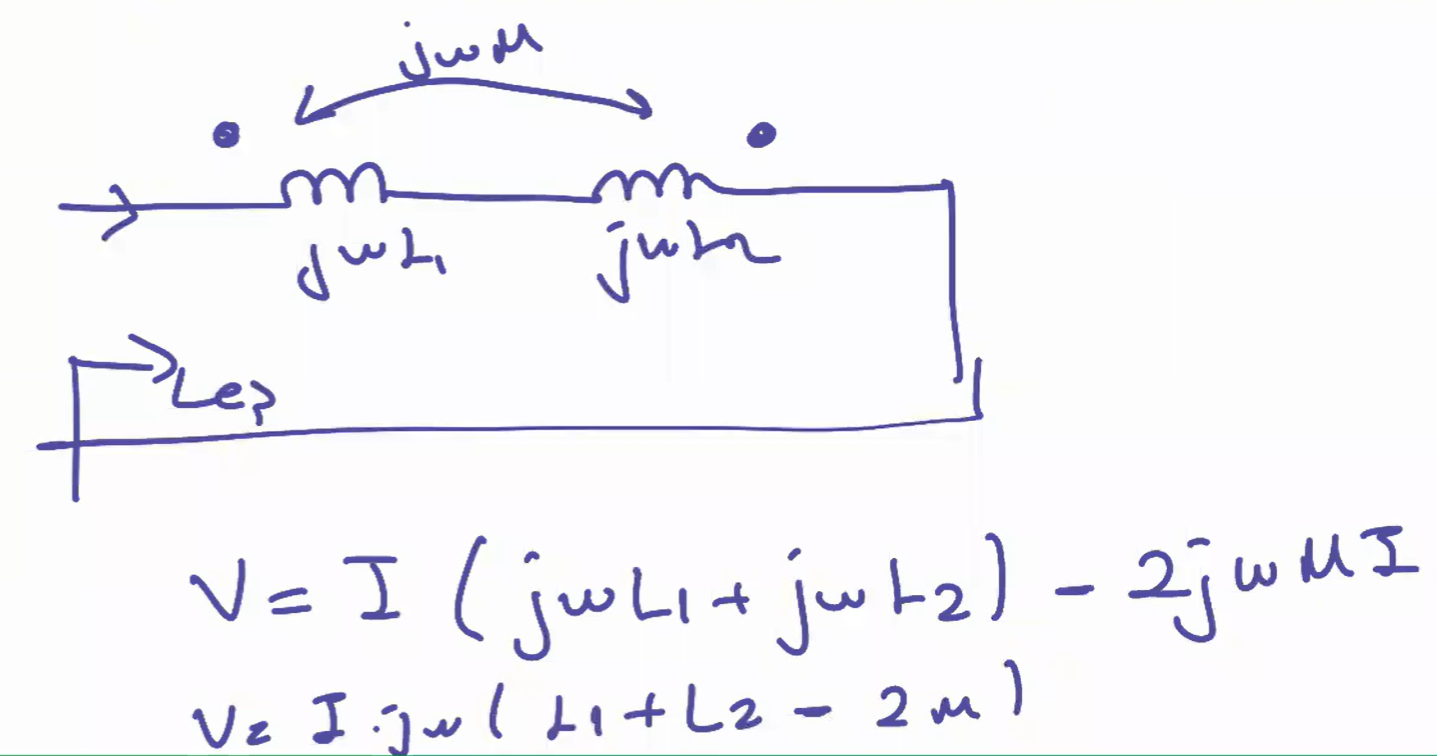 jwM
jwL1
jwL2
Leq
V = I ( jwL1 + jwL2 ) - 2jwMI
V = I . jw ( L1 + L2 - 2M )